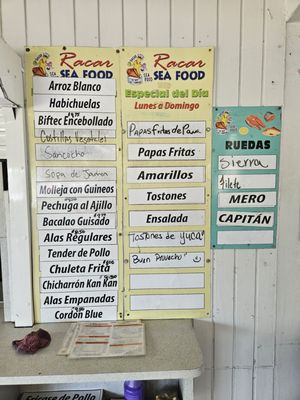 Racar
SEA FOOD
Arroz Blanco
Habichuelas
Biftec Encebollado
Costillas Vegetales
Sancocho
Sopa de Jamon
Molleja con Guineos
Pechuga al Ajillo
Bacalao Guisado
Alas Regulares
Tender de Pollo
Chuleta Frita
Chicharrón Kan Kan
Alas Empanadas
Cordon Blue
Racar
SEA FOOD
Especial del Día
Lunes a Domingo
Papas Fritas de Pana
Papas Fritas
Amarillos
Tostones
Ensalada
Tostones de yuca
Buen Provecho
RUEDAS
Sierra
Filete
MERO
CAPITÁN
Fricase de Pollo